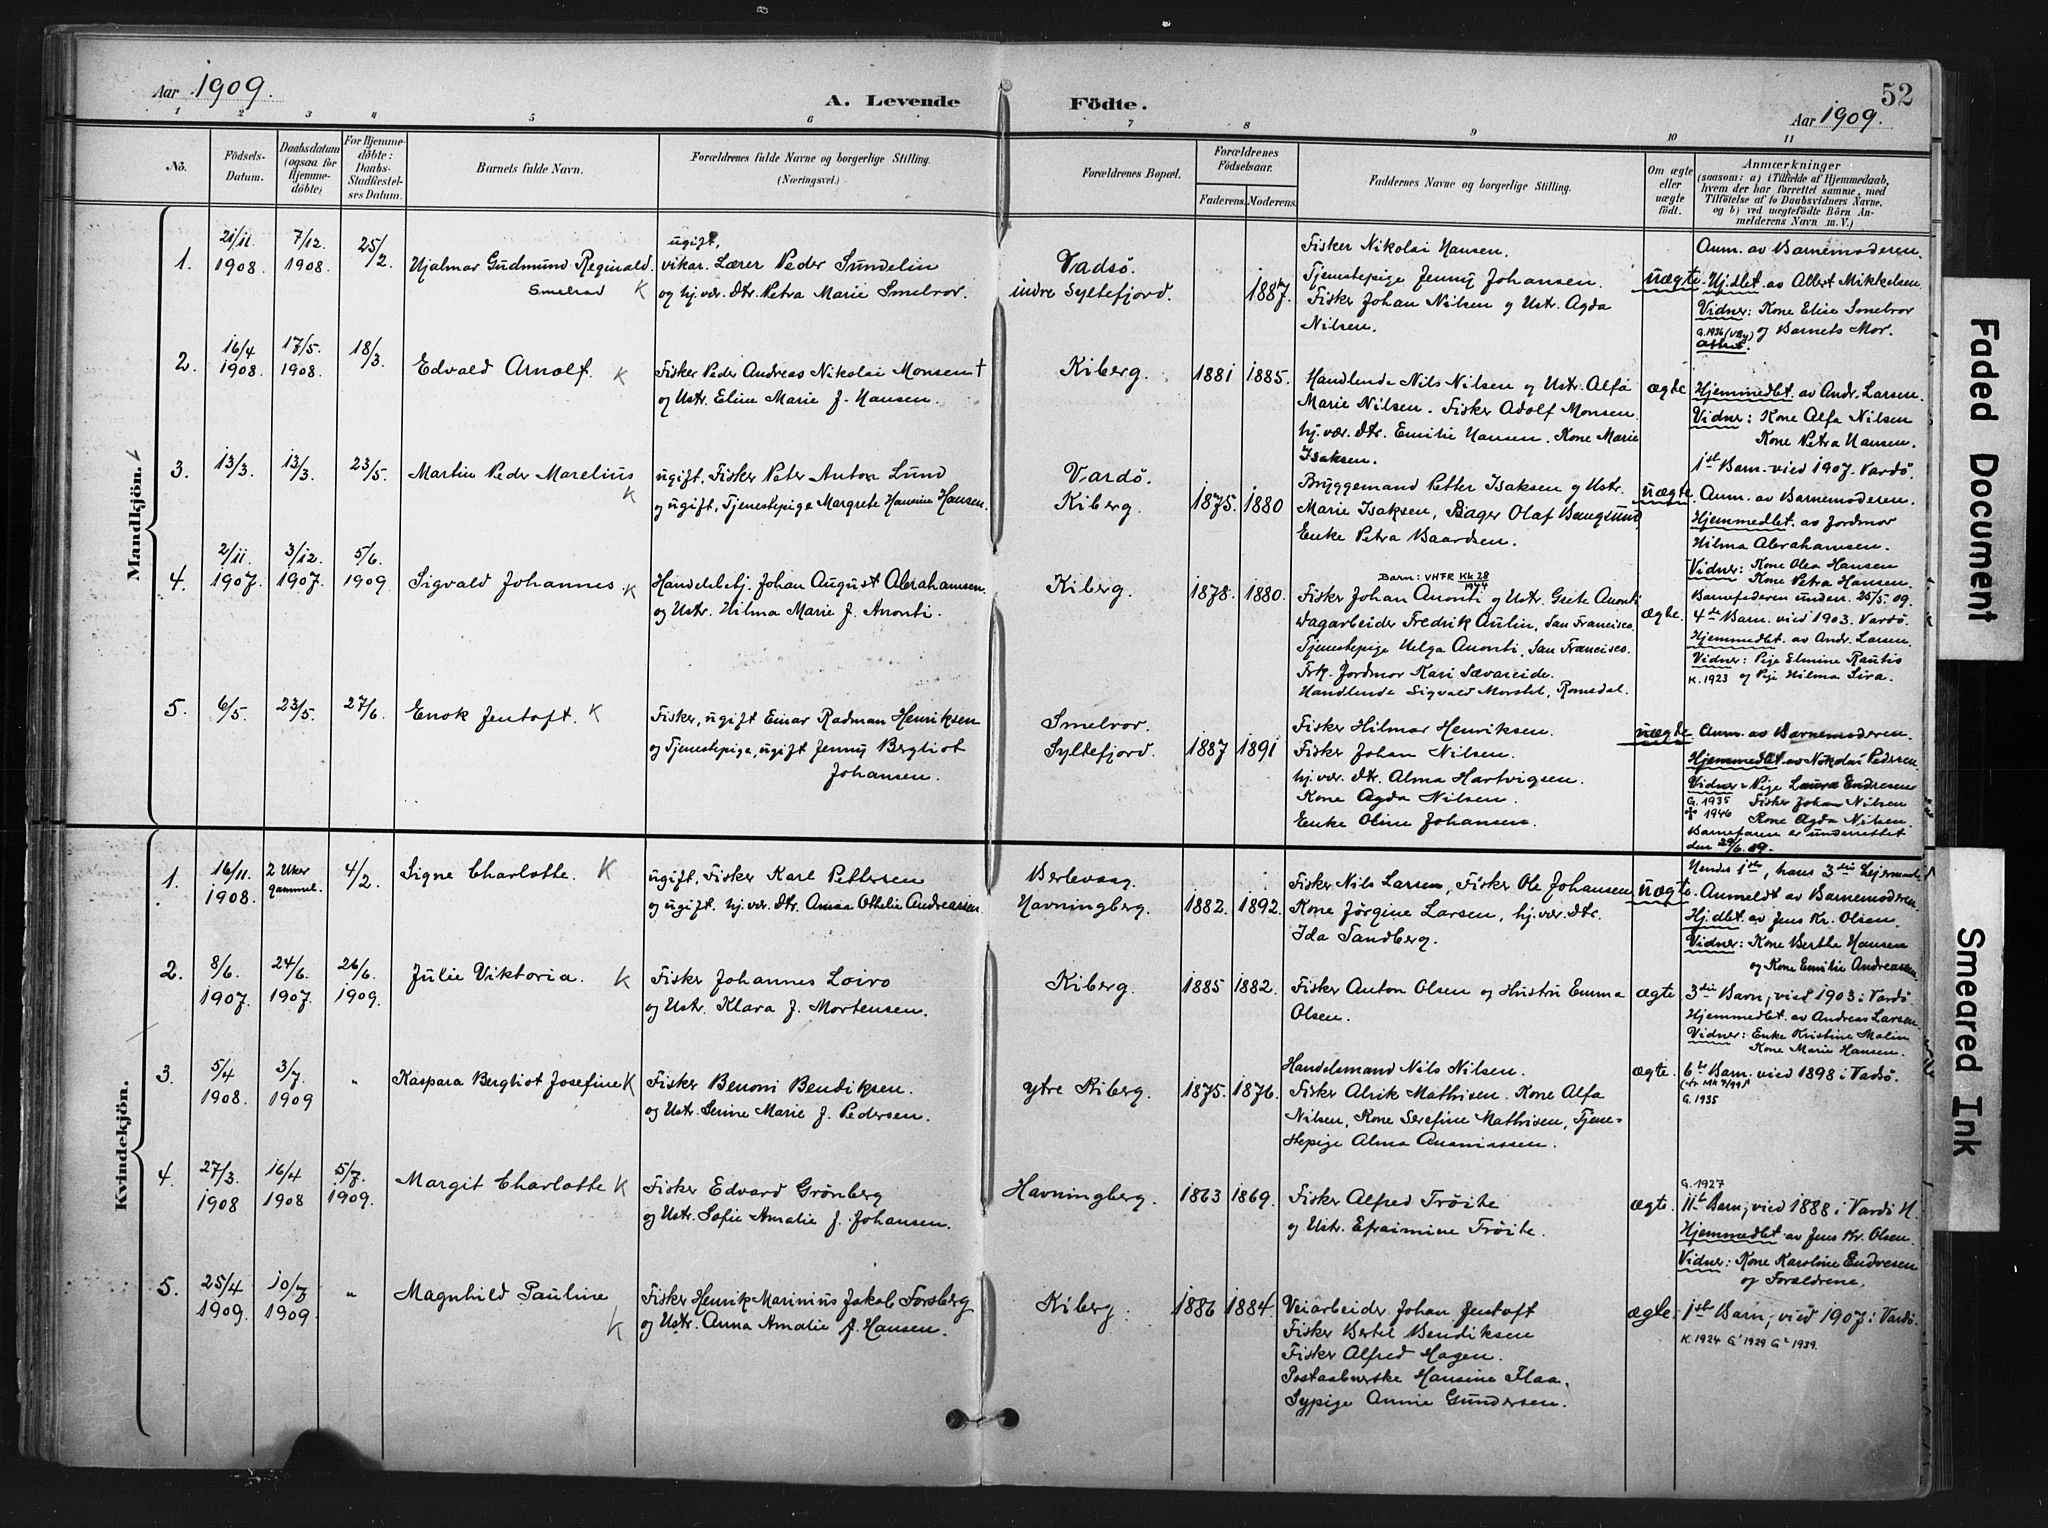 Aar 1909.
A. Levende Födte.
52
Aar 1909.
1 2 3 4 5 6 7 8 9 10 11
No.
Födsels-Datum.
Daabsdatum (ogsaa for Hjemmedöbte)
For Hjemmedöbte: Daabs-Stadfæstelses Datum.
Barnets fulde Navn.
Forældrenes fulde Navne og borgerlige Stilling.
(Næringsvei.)
Forældrenes Bopæl.
Forældrenes Födselsaar.
Faderens. Moderens.
Faddernes Navne og borgerlige Stilling.
Om ægte eller uægte födt.
Anmærkninger
(saasom: a) i Tilfælde af Hjemmedaab, hvem der har forrettet samme, med Tilföielse af to Daabsvidners Navne. og b) ved uægtefödte Börn Anmelderens Navn m. V.)
Mandkjön.
1.
21/11 1908.
7/12. 1908.
25/2
Hjalmar Gudmund Reginald
Smelror K
ugift,
vikar. Lærer Peder Sundelin
og hj.vær. Dtr. Petra Marie Smelror.
Vadsö.
indre Syltefjord.
1887.
Fisker Nikolai Hansen.
Tjenestepige Jenny Johansen.
Fisker Johan Nilsen og Ustr. Agda
Nilsen.
uægte.
Anm. av Barnemoderen.
Hj.dbt. av Albert Mikkelsen.
Vidner: Kone Elise Smelror
og Barnets Mor.
2.
16/4 1908.
17/5. 1908.
18/3.
Edvald Arnolf. K
Fisker Peder Andreas Nikolai Monsen +
og Ustr. Eline Marie J. Hansen.
Kiberg.
1881
1885.
Handlende Nils Nilsen og Ustr. Alfa
Marie Nilsen. Fisker Adolf Monsen.
hj.vær. Dtr. Emilie Hansen. Kone Marie
Isaksen.
ægte
Hjemmedbt. av Andr. Larsen.
Vidner: Kone Alfa Nilsen
Kone Petra Hansen.
3.
13/3.
13/3.
23/5.
Martin Peder Marelius
K
ugift, Fisker Peter Anton Lund
og ugift, Tjenestepige Margrete Hansine Hansen.
Vardö.
Kiberg.
1875.
1880
Bryggemand Petter Isaksen og Ustr.
Marie Isaksen, Bager Olaf Bangsund
Enke Petra Baardsen.
uægte
1ste Barn. vied 1907. Vardö.
Anm. av Barnemoderen.
Hjemmedbt. av Jordmor
Hilma Abrahamsen.
Vidner: Kone Olea Hansen
Kone Petra Hansen.
Barnefaderen underr. 25/5. 09.
4.
2/11. 1907.
3/12. 1907.
5/6. 1909
Sigvald Johannes K
Handelsbj. Johan August Abrahamsen.
og Ustr. Hilma Marie J. Anonti.
Kiberg.
1878.
1880.
Barn: VHFR Kk 28 1944
Fisker Johan Anonti og Ustr. Grete Anonti
Dagarbeider Fredrik Aulin, San Francisco.
Tjenestepige Helga Anonti, San Francisco.
Frk. Jordmor Kari Sævareide.
Handlende Sigvald Morstøl, Romsdal.
ægte.
4de Barn. vied 1903. Vardö.
Hjemmedbt. av Andr. Larsen.
Vidner: Pige Elmine Rautio
K. 1923 og Pige Hilma Sira.
5.
6/5.
23/5.
27/6.
Enok Jentoft. K
Fisker, ugift Einar Radman Henriksen
og Tjenestepige, ugift Jenny Bergliot
Johansen.
Smelror.
Syltefjord.
1887
1891
Fisker Hilmar Henriksen.
Fisker Johan Nilsen.
hj.vær. Dtr. Alma Hartvigsen.
Kone Agda Nilsen.
Enke Oline Johansen.
uægte.
Anm. av Barnemoderen.
Hjemmedbt. av Nikolai Pedersen.
Vidner: Pige Laura Endresen
G. 1935 Fisker Johan Nilsen
1946 Kone Agda Nilsen.
Barnefaren er underrettet
Kvindekjön.
1.
16/11. 1908.
2 Uker gammel.
4/2.
Signe Charlotte. K
ugift, Fisker Karl Pettersen
og ugift. hj.vær. Dtr. Anna Othelie Andreassen.
Berlevaag.
Havningberg.
1882.
1892.
Fisker Nils Larsen, Fisker Ole Johansen
Kone Jörgine Larsen, hj.vær. Dtr.
Ida Sandberg.
uægte.
Hendes 1ste, hans 3die Leiermaal.
Anmeldt av Barnemoderen.
Hj.dbt. av Jens Kr. Olsen.
Vidner: Kone Berthe Hansen
og Kone Emilie Andreassen.
2.
8/6. 1907.
24/6. 1907.
26/6. 1909.
Julie Viktoria. K
Fisker Johannes Loiro
og Ustr. Klara J. Mortensen.
Kiberg.
1885
1882.
Fisker Anton Olsen og Hustru Emma
Olsen.
ægte
3die Barn, vied 1903 i Vardö.
Hjemmedbt. av Andreas Larsen.
Vidner: Enke Kristine Malin
Kone Marie Hansen.
3.
5/4 1908.
3/7. 1909
"
Kaspara Bergliot Josefine K
Fisker Benoni Bendiksen.
og Ustr. Serine Marie J. Pedersen.
Ytre Kiberg.
1875.
1876.
Handelsmand Nils Nilsen.
Fisker Alrik Mathisen. Kone Alfa
Nilsen, Kone Serefine Mathisen, Tjene-
stepige Alma Ananiassen.
ægte.
6te Barn. vied 1898 i Vadsö.
G. 1935
4.
27/3. 1908
16/4 1908
5/7. 1909.
Margit Charlotte K
Fisker Edvard Grönberg
og Ustr. Sofie Amalie J. Johansen.
Havningberg.
1863
1869.
Fisker Alfred Tröite
og Ustr. Efraimine Tröite.
ægte.
G. 1927
11te Barn, vied 1888 i Vardö H.
Hjemmedbt av Jens Kr. Olsen.
Vidner: Kone Karoline Endresen
og Forældrene.
5.
25/4 1909.
10/7 1909.
"
Magnhild Pauline
K
Fisker Henrik Marinius Jakob Forsberg
og Ustr. Anna Amalie J. Hansen.
Kiberg.
1886
1884.
Veiarbeider Johan Jentoft
Fisker Bertel Bendiksen
Fisker Alfred Hagen.
Postaabnerske Hansine Flaa.
Sypige Annie Gundersen.
ægte.
1ste Barn, vied 1907 i Vardö.
K. 1924 G' 1929 G² 1939.
Faded Document
Smeared Ink